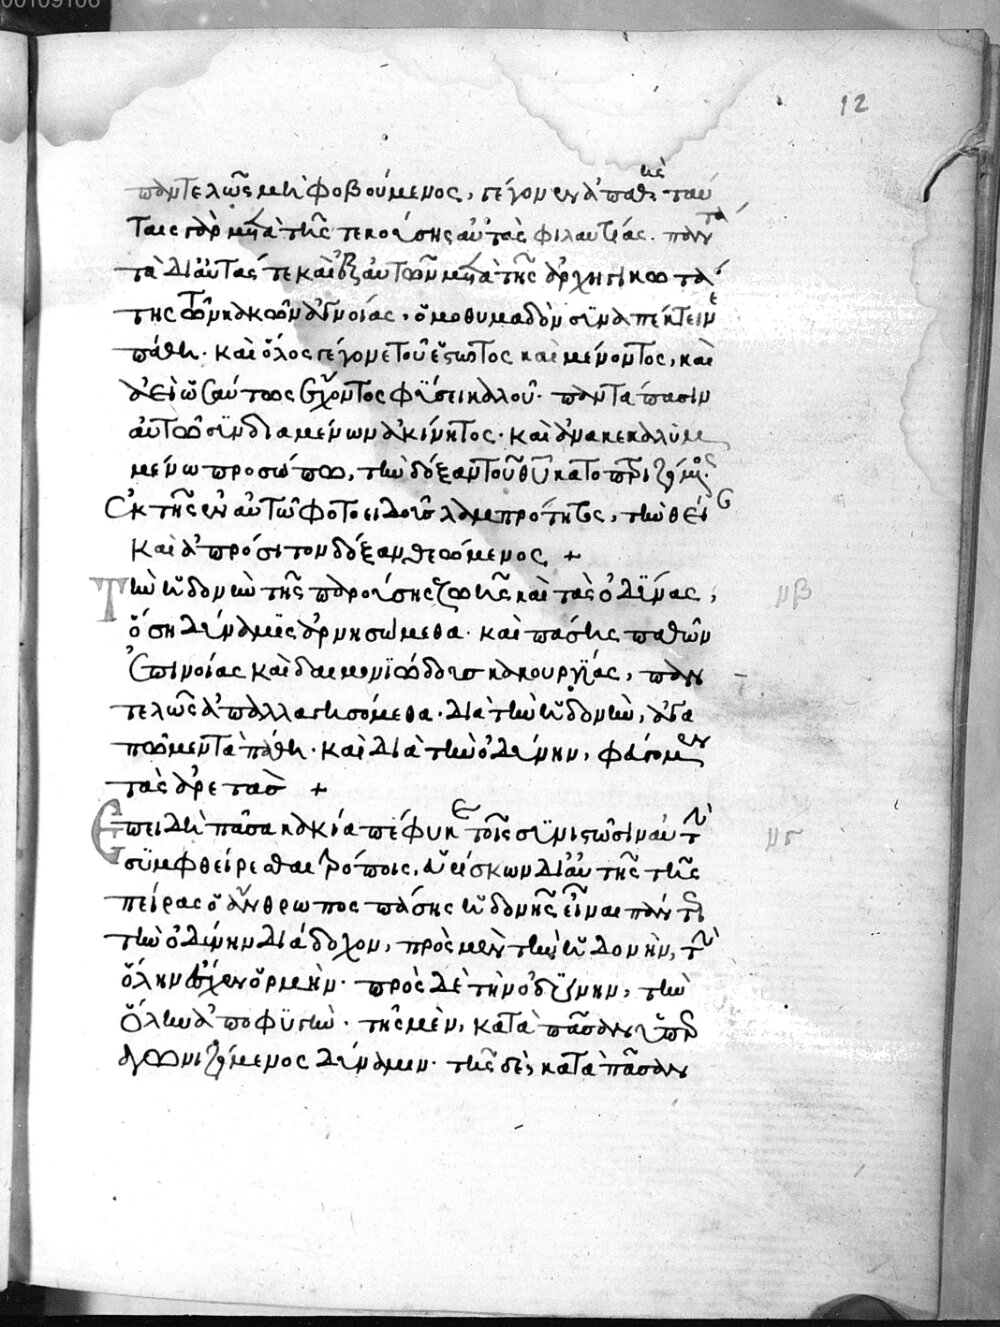 00109106
12
παντελῶς μὴ φοβούμενος, γέγονεν ἀπαθὴς ταύ
ταις γὰρ μετὰ τῆς τεκούσης αὐτὰς φιλαυτίας. πάντα
τὰ δι' αὐτάς τε καὶ ἐξ αὐτῶν μετὰ τῆς ἀρχηγικωτά
της τῶν κακῶν ἀγνοίας, ὁμοθυμαδὸν συναπέκτεινε
πάθη. καὶ ὅλος γέγονε τοῦ ἑστῶτος καὶ μένοντος, καὶ
ἀεὶ ὡσαύτως ἔχοντος φύσει καλοῦ. πάντα πᾶσιν
αὐτῷ συνδιαμένων ἀκίνητος. καὶ ἀνακεκαλυμ
μένω προσώπω, τὴν δόξαν τοῦ θυ κατοπτριζόμενος
ἐκ τῆς ἐν αὐτῷ φωτοειδοῦς λαμπρότητος, τὴν θεί
καὶ ἀπρόσιτον δόξαν θεώμενος +
Τὴν ἡδονὴν τῆς παρούσης ζωῆς καὶ τὰς ὀδύνας,
ὅση δύναμις ἀρνησώμεθα. καὶ πάσης παθῶν
ἐπινοίας καὶ δαιμονιώδους κακουργίας, παν
τελῶς ἀπαλλαγησόμεθα. διὰ τὴν ἡδονὴν, ἀγα
πῶμεν τὰ πάθη. καὶ διὰ τὴν ὀδύνην, φεύγομεν
τὰς ἀρετάς +
μβ
Ἐπειδὴ πᾶσα κακία πέφυκε τοῖς συνιστῶσιν αὐτὴν
συμφθείρεσθαι τρόποις, εὑρίσκων δι' αὐτῆς τῆς
πείρας ὁ ἄνθρωπος πάσης ἡδονῆς εἶναι πάντως
τὴν ὀδύνην διάδοχον, πρὸς μὲν τὴν ἡδονὴν, τὴν
ὅλην ἔσχεν ὁρμὴν. πρὸς δὲ τὴν ὀδύνην, τὴν
ὅλην ἀποφυγὴν. τῆς μὲν, κατὰ πᾶσαν ὑπερ
αγωνιζόμενος δύναμιν. τῆς δὲ, κατὰ πᾶσαν